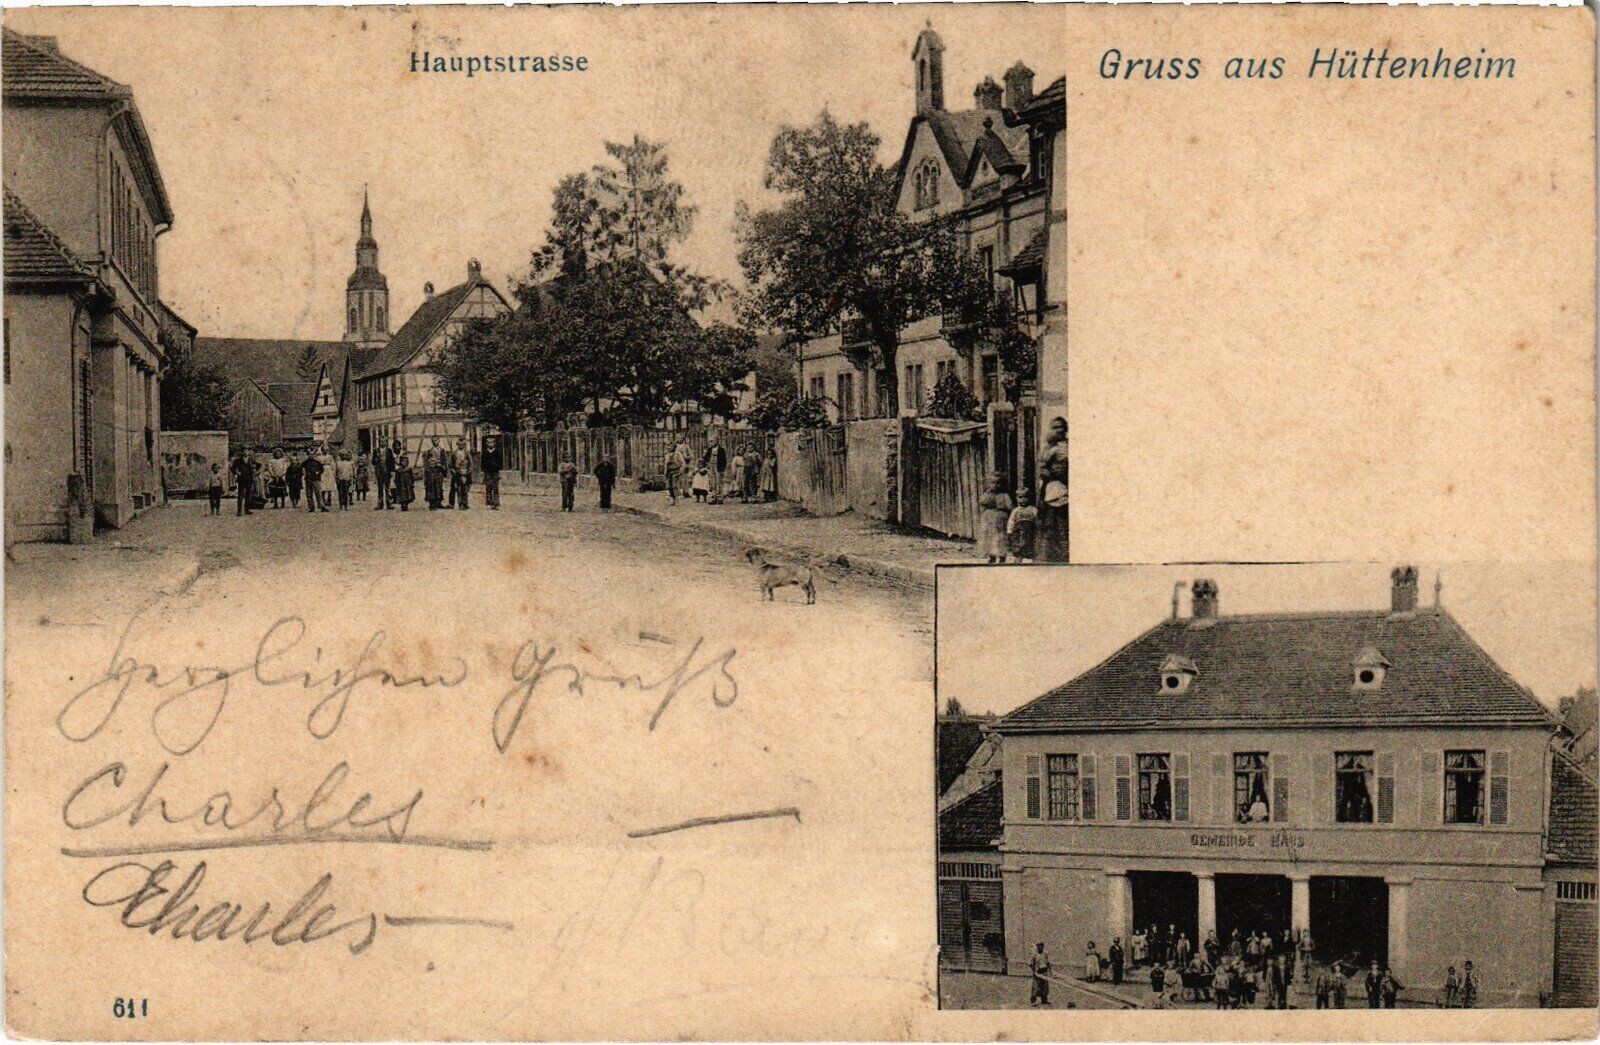 Hauptstrasse
Gruss aus Hüttenheim
Herzlichen Gruß
Charles
Charles
GEMEINDE HAUS
611